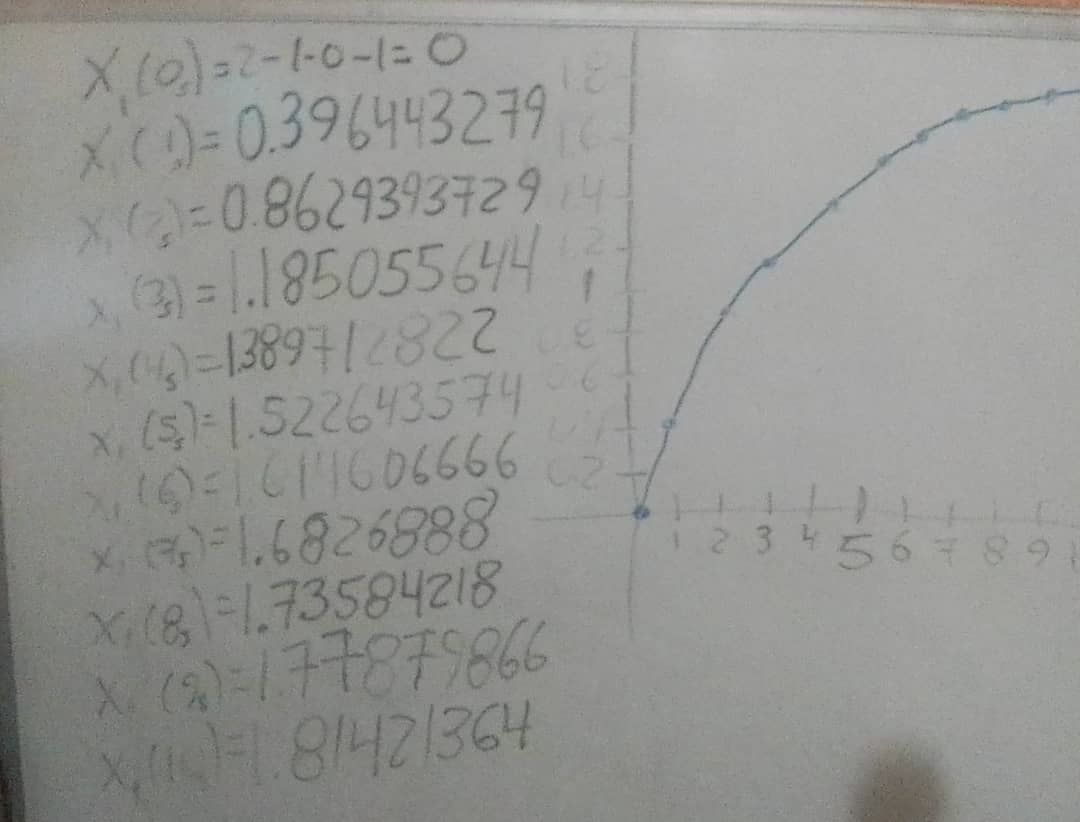 X₁(0ₛ)=2-1-0-1=0
X₁(1ₛ)=0.396443279
X₁(2ₛ)=0.8629393729
X₁(3ₛ)=1.185055644
X₁(4ₛ)=1389712822
X₁(5ₛ)=1.522643574
X₁(6ₛ)=
X₁(7ₛ)=1.6826888
X₁(8ₛ)=1.73584218
X₁(9ₛ)=1.77879866
1.81421364
1.8
1.6
1.4
1.2
1
0.8
0.6
0.4
0.2
1 2 3 4 5 6 7 8 9